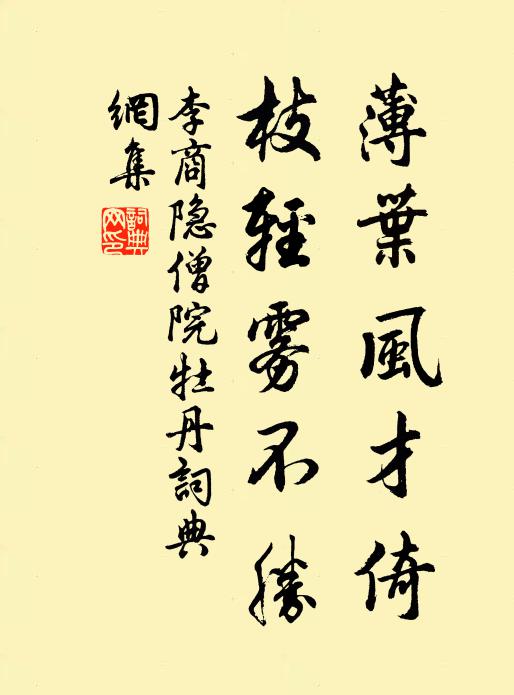 薄葉風才倚
枝輕雾不勝
李商隐僧院牡丹詞典
網集
詞典
网印